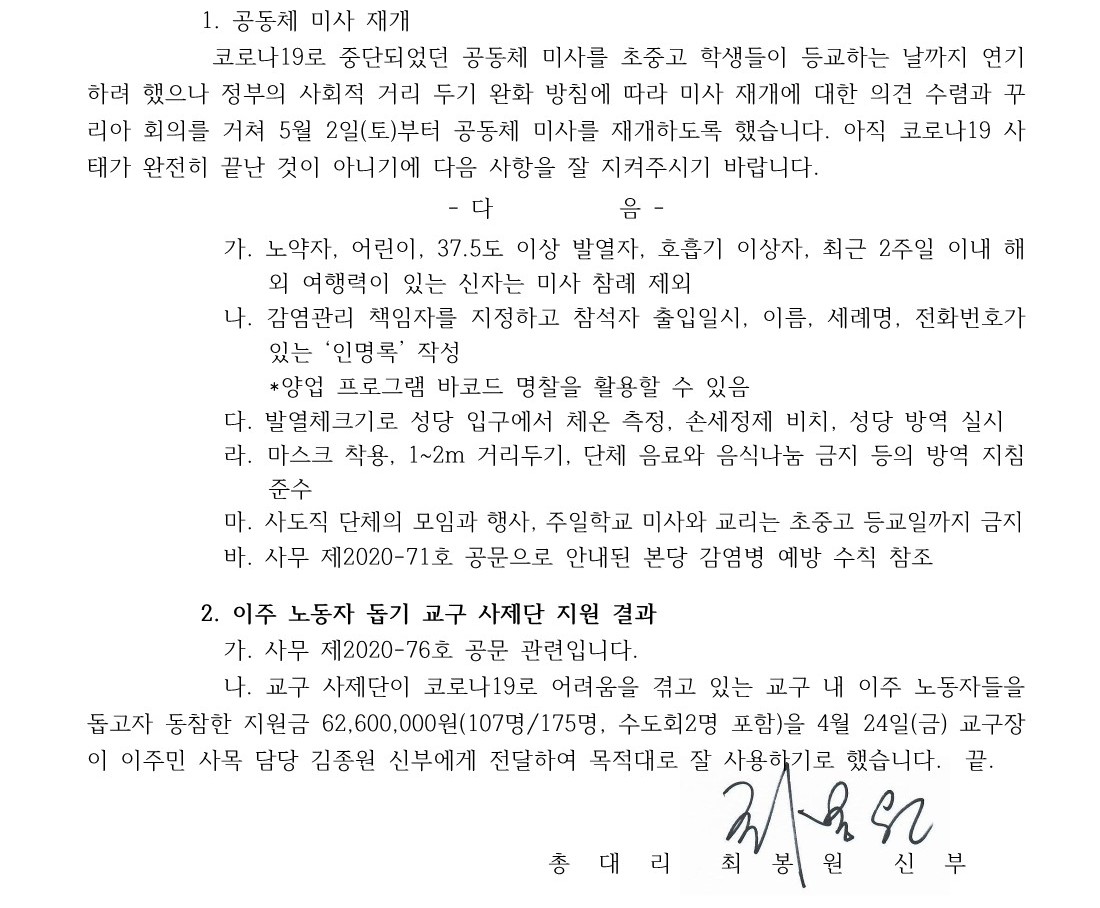 1. 공동체 미사 재개
코로나19로 중단되었던 공동체 미사를 초중고 학생들이 등교하는 날까지 연기
하려 했으나 정부의 사회적 거리 두기 완화 방침에 따라 미사 재개에 대한 의견 수렴과 꾸
리아 회의를 거쳐 5월 2일(토)부터 공동체 미사를 재개하도록 했습니다. 아직 코로나19 사
태가 완전히 끝난 것이 아니기에 다음 사항을 잘 지켜주시기 바랍니다.
- 다 음 -
가. 노약자, 어린이, 37.5도 이상 발열자, 호흡기 이상자, 최근 2주일 이내 해
외 여행력이 있는 신자는 미사 참례 제외
나. 감염관리 책임자를 지정하고 참석자 출입일시, 이름, 세례명, 전화번호가
있는 ‘인명록’ 작성
*양업 프로그램 바코드 명찰을 활용할 수 있음
다. 발열체크기로 성당 입구에서 체온 측정, 손세정제 비치, 성당 방역 실시
라. 마스크 착용, 1~2m 거리두기, 단체 음료와 음식나눔 금지 등의 방역 지침
준수
마. 사도직 단체의 모임과 행사, 주일학교 미사와 교리는 초중고 등교일까지 금지
바. 사무 제2020-71호 공문으로 안내된 본당 감염병 예방 수칙 참조
2. 이주 노동자 돕기 교구 사제단 지원 결과
가. 사무 제2020-76호 공문 관련입니다.
나. 교구 사제단이 코로나19로 어려움을 겪고 있는 교구 내 이주 노동자들을
돕고자 동참한 지원금 62,600,000원(107명/175명, 수도회2명 포함)을 4월 24일(금) 교구장
이 이주민 사목 담당 김종원 신부에게 전달하여 목적대로 잘 사용하기로 했습니다. 끝.
총 대 리 최 봉 원 신 부